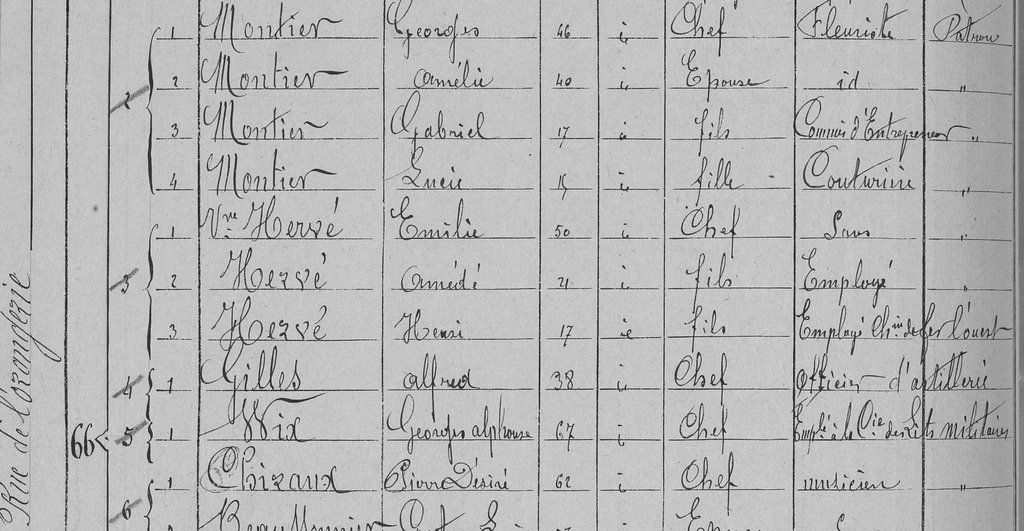 1 Montier Georges 46 i. Chef Fleuriste Patron
2 2 Montier Amélie 40 i. Epouse id "
3 Montier Gabriel 17 i. fils Commis d'Entrepreneur "
4 Montier Lucie 15 i. fille Couturière "
1 Vve Hervé Emilie 50 i. Chef Sans "
3 2 Hervé Amédé 21 i. fils Employé "
3 Hervé Henri 17 ie fils Employé Chin de fer l'ouest
4 1 Gilles Alfred 38 i. Chef Officier d'artillerie
66 5 1 Wix Georges alphonse 67 i. Chef Emplé à la Cie des Lits militaires
1 Chizaux Pierre Désiré 62 i. Chef musicien "
6
Rue de l'orangerie